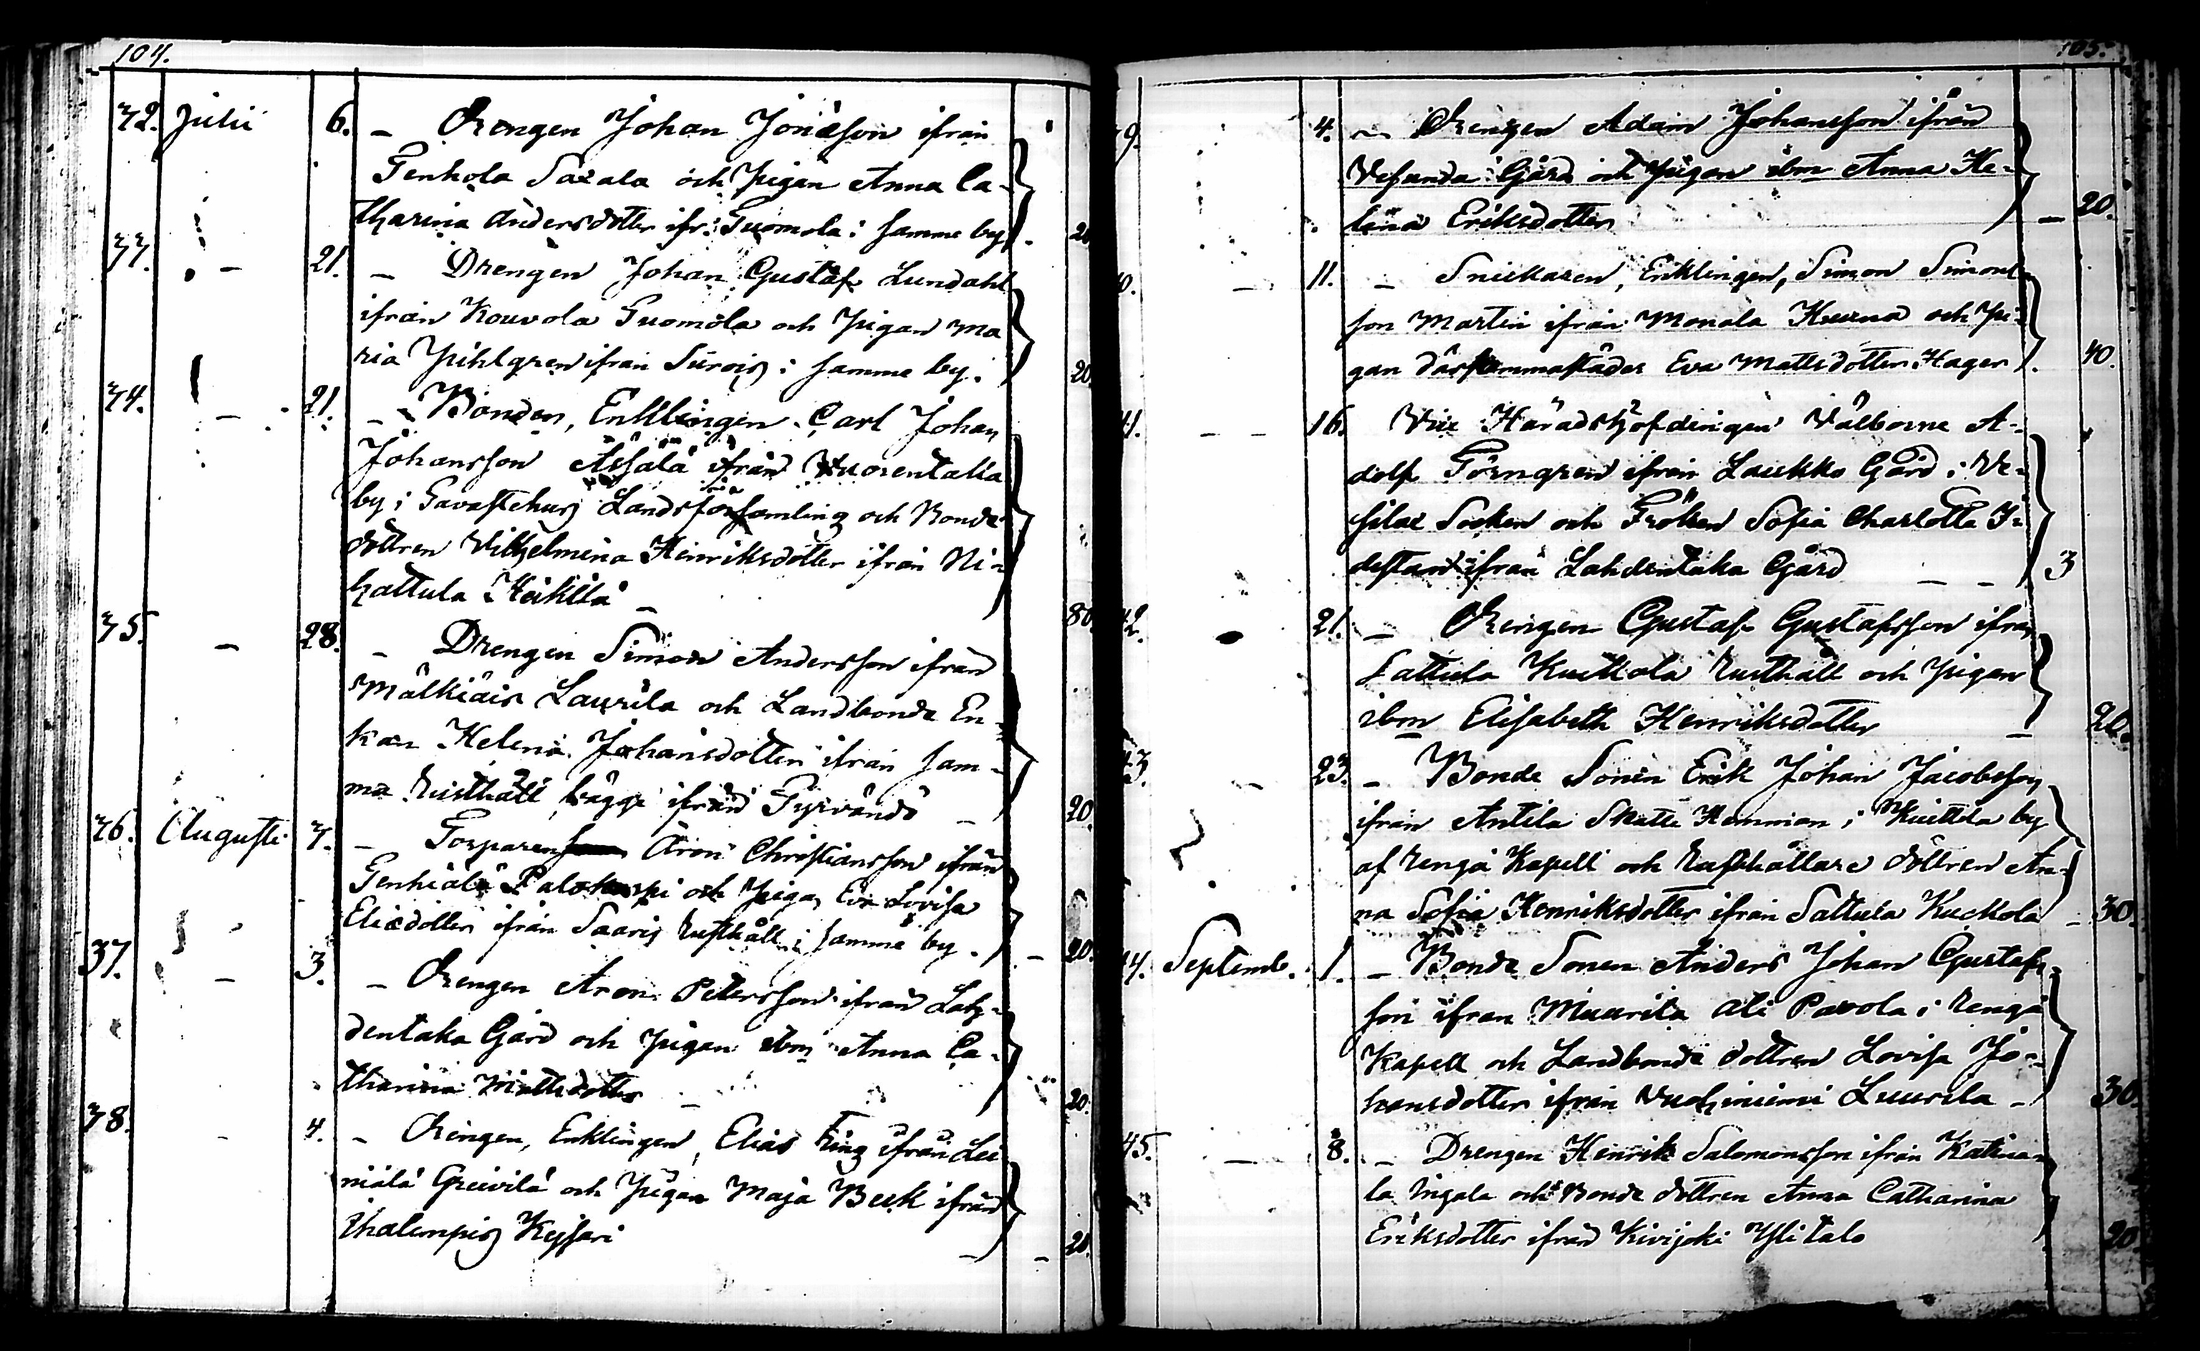 104.
32. Julii 6. – Drengen Johan Jonasson ifrån
Tenhola Saxala och Pigan Anna Ca-
tharina Andersdotter ifr: Tuomola i samme by. 20
33. – 21. – Drengen Johan Gustaf Lundahl
ifrån Kouvola Tuomola och Pigan Ma
ria Pihlgren ifrån i samme by. 20.
34. – 21. – Bonden, Enklingen Carl Johan
Johansson Assala ifrån Vuorentaka
by i Tavastehus Landsförsamling och Bonde
dottren Vilhelmina Henriksdotter ifrån Ni-
hattula Heikkilä – 80
35. – 28. – Drengen Simon Andersson ifrån
Mälkiäis Laurila och Landbonde En-
kan Helena Johansdotter ifrån sam-
ma Rusthåll bägge ifrån Tyrväntö – 20.
36. Augusti 3. – Torparen Aron Christiansson ifrån
Palokorpi och Pigan Eva Lovisa
Eliædotter ifrån Saaris Rusthåll i samme by. – 20.
37. – 3. – Drengen Aron Petersson ifrån Lah-
dentaka Gård och Pigan ibm Anna Ca-
tharina Mattsdotter – 20.
38. – 4. – Drengen, Enklingen, Elias Ring ifrån Lei
niälä Greivilä och Pigan Maja Beck ifrån
Ihalempis Keysari – 20.
105.
39. 4. – Drengen Adam Johansson ifrån
Vesunda Gård och Pigan ibm Anna He-
lena Eriksdotter – 20.
40. – 11. – Snickaren, Enklingen, Simon Simons
son Martin ifrån Monala Kurna och Pi-
gan därsammastädes Eva Mattsdotter Hager. 40.
41. – – 16. Vice Häradshöfdingen Välborne A-
dolf Törngren ifrån Laukko Gård i Ve-
silax Socken och Fröken Sofia Charlotta I-
destam ifrån Lahdentaka Gård – – 3
42. 21. – Drengen Gustaf Gustafsson ifrån
Sattula Kuckola Rusthåll och Pigan
ibm Elisabeth Henriksdotter – 20.
43. – 23. – Bonde Sonen Erik Johan Jacobsson
ifrån Antila Skatte Hemman i Kuittila by
af Rengå Kapell och Rusthållare dottren An-
na Sofia Henriksdotter ifrån Sattula Kuckola – 30.
44. Septemb. 1. – Bonde Sonen Anders Johan Gustafs-
son ifrån Muurila Ali Pavola i Rengå
Kapell och Landbonde dottren Lovisa Jo-
hansdotter ifrån Vuohiniemi Luurila – 30.
45. – 8. – Drengen Henrik Salomonsson ifrån Katina-
la Ingala och Bonde dottren Anna Catharina
Eriksdotter ifrån Kivijoki Ylitalo 20.